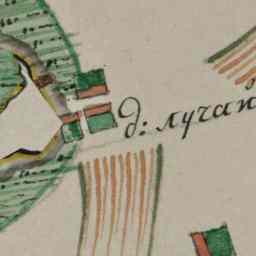 д: лучан